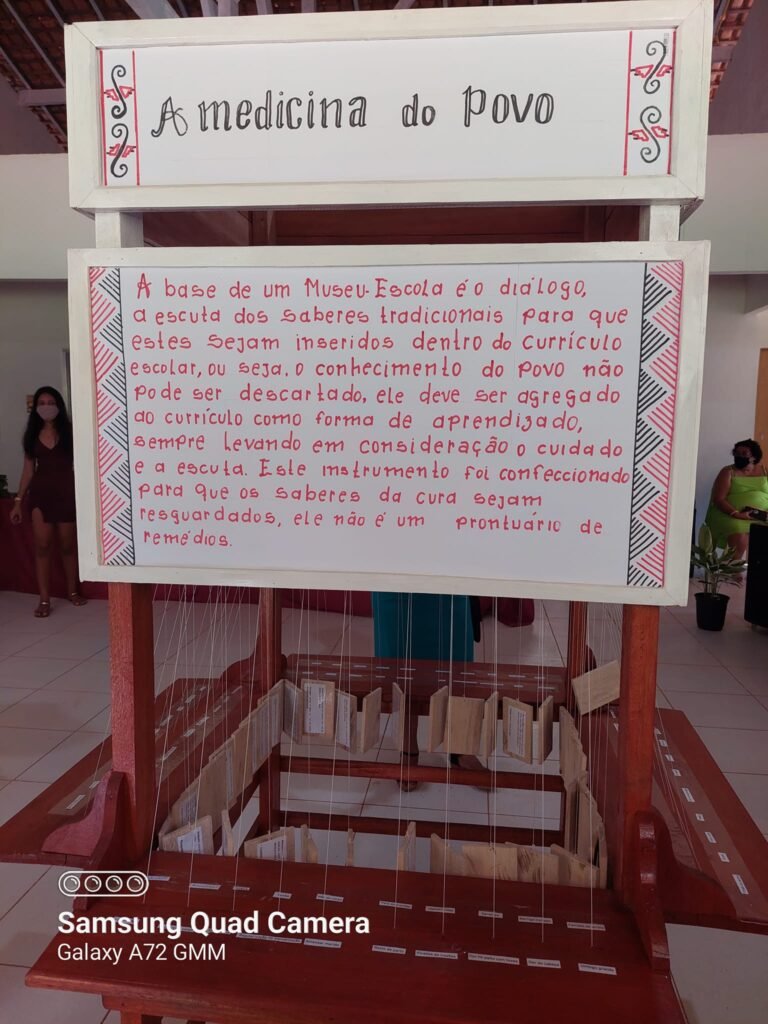 A medicina do Povo
A base de um Museu-Escola é o diálogo,
a escuta dos saberes tradicionais para que
estes sejam inseridos dentro do currículo
escolar, ou seja, o conhecimento do povo não
pode ser descartado, ele deve ser agregado
ao currículo como forma de aprendizado,
sempre levando em consideração o cuidado
e a escuta. Este instrumento foi confeccionado
para que os saberes da cura sejam
resguardados, ele não é um prontuário de
remédios.
Samsung Quad Camera
Galaxy A72 GMM
Dor de cabeça